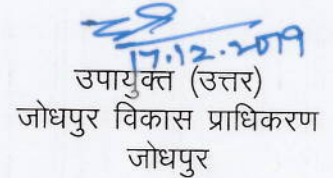 17.12.2019
उपायुक्त (उत्तर)
जोधपुर विकास प्राधिकरण
जोधपुर